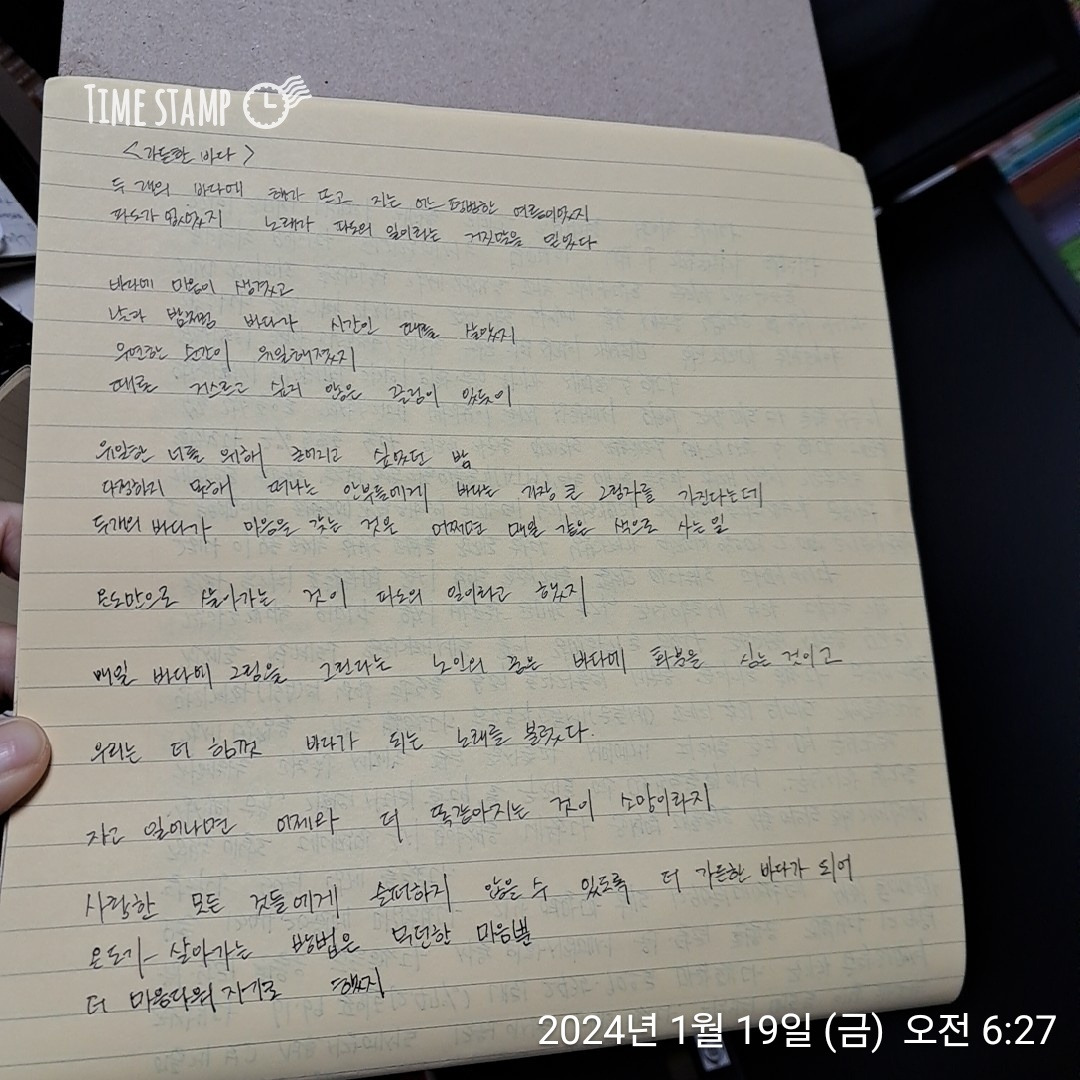 TIME STAMP
<가득한 바다>
두 개의 바다에 해가 뜨고 지는 어느 평범한 여름이었지
파도가 있었지 노래가 파도의 일이라는 거짓말을 믿었다
바다에 마음이 생겼고
낮과 밤처럼 바다가 시간인 때를 살았지
우연한 순간이 유일해졌지
때로 거스르고 싶지 않은 끌림이 있듯이
유일한 너를 위해 흐려지고 싶었던 밤
다정하지 못해 떠나는 안부들에게 바다는 가장 큰 그림자를 가진다는데
두개의 바다가 마음을 갖는 것은 어쩌면 매일 같은 색으로 사는 일
온도만으로 살아가는 것이 파도의 일이라고 했지
매일 바다에 그림을 그린다는 노인의 꿈은 바다에 화분을 심는 것이고
우리는 더 힘껏 바다가 되는 노래를 불렀다.
자고 일어나면 어제와 더 똑같아지는 것이 소망이라지
사랑한 모든 것들에게 슬퍼하지 않을 수 있도록 더 가득한 바다가 되어
온도가 살아가는 방법은 무던한 마음뿐
더 마음다워지기로 했지
2024년 1월 19일 (금) 오전 6:27